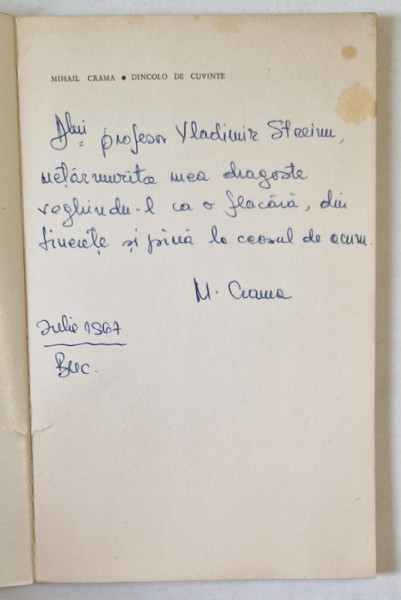 MIHAIL CRAMA ● DINCOLO DE CUVINTE
Dlui profesor Vladimir Streinu,
nețărmurita mea dragoste
veghindu-l ca o flacără, din
tinerețe și pînă la ceasul de acum.
M. Crama
Iulie 1967
Buc.